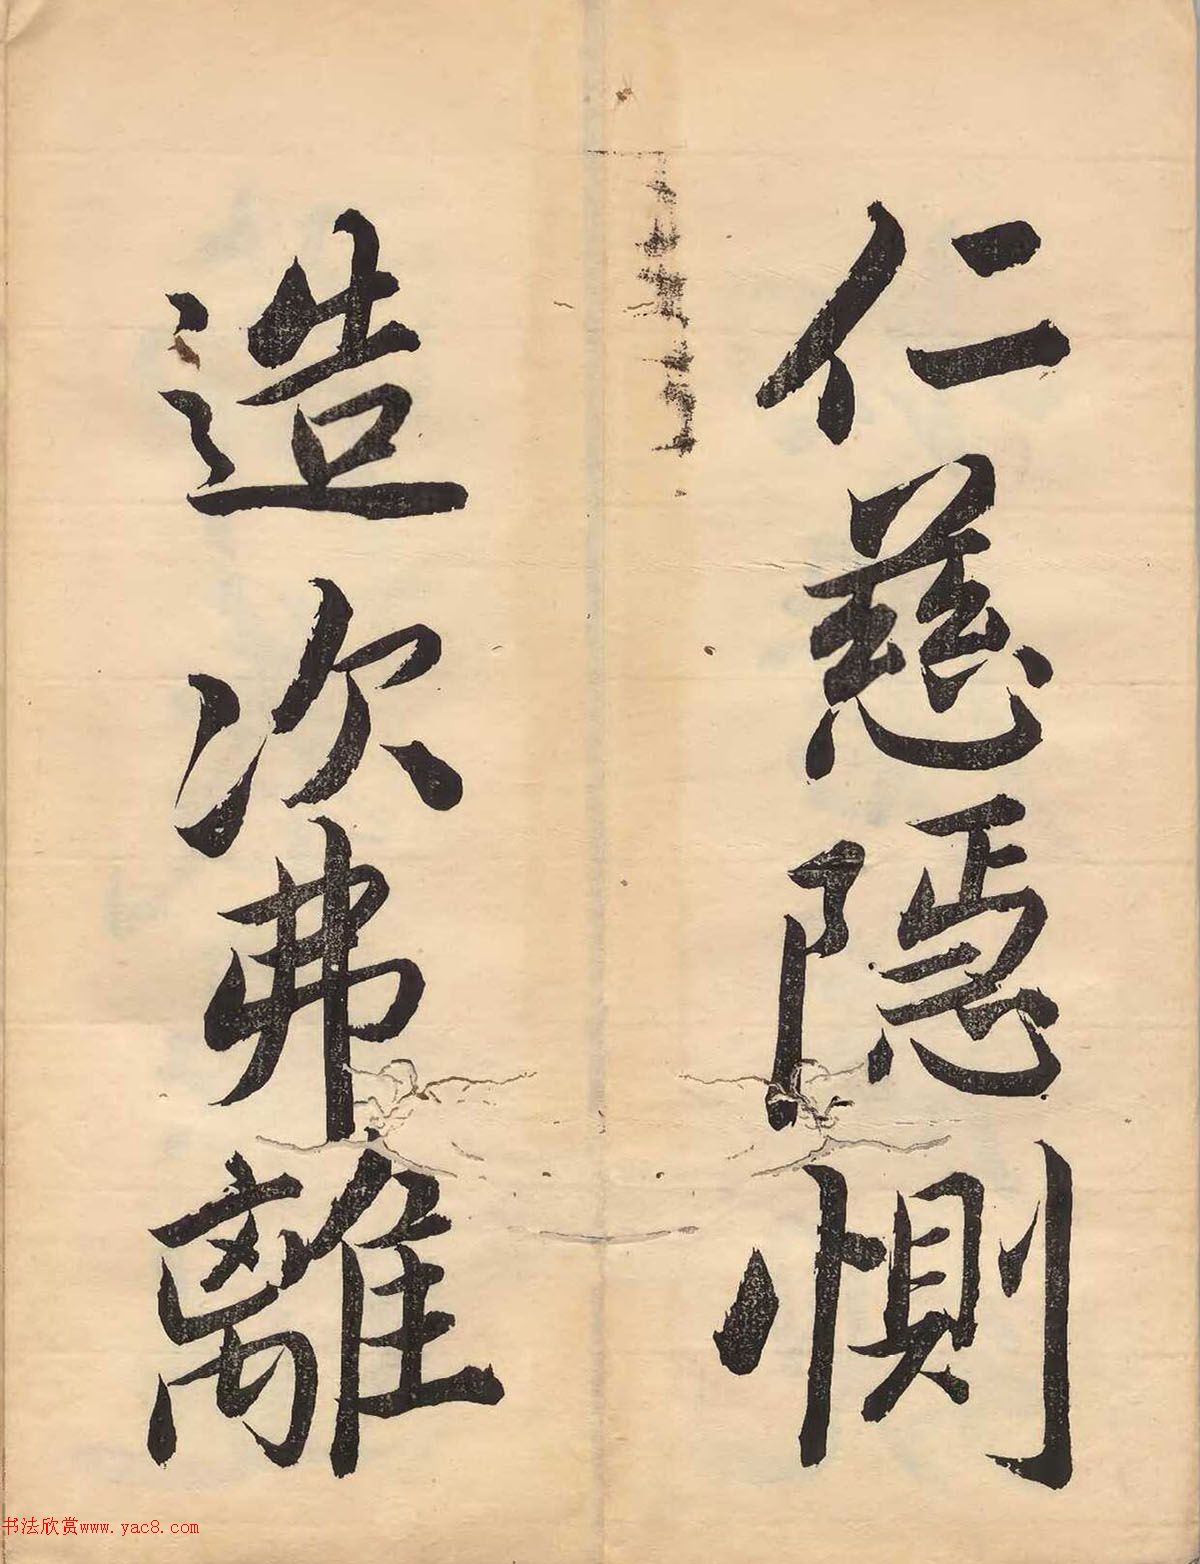 仁慈隱惻
造次弗離
书法欣赏www.yac8.com